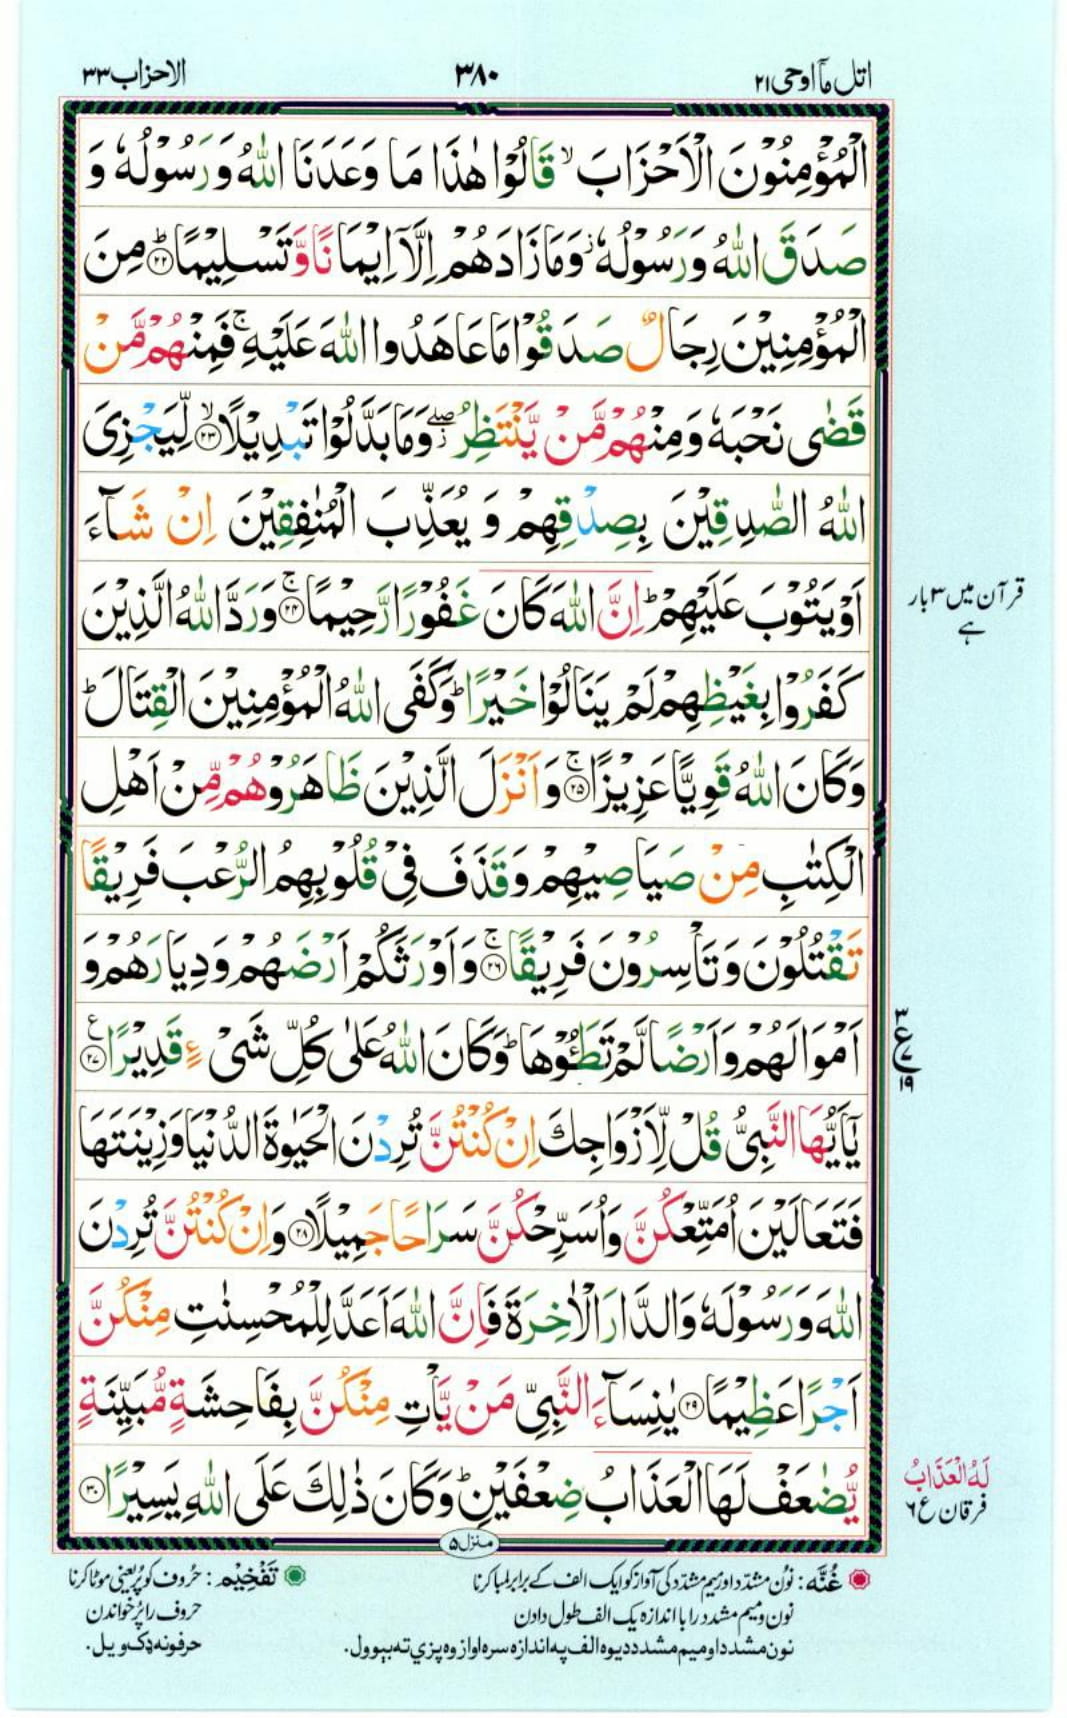 اتل ماۤ اوحی ۲۱
۳۸۰
الاحزاب ۳۳
الْمُؤْمِنُوْنَ الْاَحْزَابَ ۙ قَالُوْا هٰذَا مَا وَعَدَنَا اللّٰهُ وَ رَسُوْلُهٗ وَ
صَدَقَ اللّٰهُ وَ رَسُوْلُهٗ ؗ وَ مَا زَادَهُمْ اِلَّاۤ اِيْمَانًا وَّ تَسْلِيْمًا ؕ﴿۲۲﴾ مِنَ
الْمُؤْمِنِيْنَ رِجَالٌ صَدَقُوْا مَا عَاهَدُوا اللّٰهَ عَلَيْهِ ۚ فَمِنْهُمْ مَّنْ
قَضٰى نَحْبَهٗ وَ مِنْهُمْ مَّنْ يَّنْتَظِرُ ۖؗ وَ مَا بَدَّلُوْا تَبْدِيْلًا ۙ﴿۲۳﴾ لِّيَجْزِىَ
اللّٰهُ الصّٰدِقِيْنَ بِصِدْقِهِمْ وَ يُعَذِّبَ الْمُنٰفِقِيْنَ اِنْ شَآءَ
اَوْ يَتُوْبَ عَلَيْهِمْ ؕ اِنَّ اللّٰهَ كَانَ غَفُوْرًا رَّحِيْمًا ۚ﴿۲۴﴾ وَ رَدَّ اللّٰهُ الَّذِيْنَ
قرآن میں ۳ بار
ہے
كَفَرُوْا بِغَيْظِهِمْ لَمْ يَنَالُوْا خَيْرًا ؕ وَ كَفَى اللّٰهُ الْمُؤْمِنِيْنَ الْقِتَالَ ؕ
وَ كَانَ اللّٰهُ قَوِيًّا عَزِيْزًا ۚ﴿۲۵﴾ وَ اَنْزَلَ الَّذِيْنَ ظَاهَرُوْهُمْ مِّنْ اَهْلِ
الْكِتٰبِ مِنْ صَيَاصِيْهِمْ وَ قَذَفَ فِىْ قُلُوْبِهِمُ الرُّعْبَ فَرِيْقًا
تَقْتُلُوْنَ وَ تَاْسِرُوْنَ فَرِيْقًا ۚ﴿۲۶﴾ وَ اَوْرَثَكُمْ اَرْضَهُمْ وَ دِيَارَهُمْ وَ
اَمْوَالَهُمْ وَ اَرْضًا لَّمْ تَطَـُٔوْهَا ؕ وَ كَانَ اللّٰهُ عَلٰى كُلِّ شَىْءٍ قَدِيْرًا ﴿۲۷﴾ ع
۳ ع ۷ ۱۹
يٰۤاَيُّهَا النَّبِىُّ قُلْ لِّاَزْوَاجِكَ اِنْ كُنْتُنَّ تُرِدْنَ الْحَيٰوةَ الدُّنْيَا وَ زِيْنَتَهَا
فَتَعَالَيْنَ اُمَتِّعْكُنَّ وَ اُسَرِّحْكُنَّ سَرَاحًا جَمِيْلًا ﴿۲۸﴾ وَ اِنْ كُنْتُنَّ تُرِدْنَ
اللّٰهَ وَ رَسُوْلَهٗ وَ الدَّارَ الْاٰخِرَةَ فَاِنَّ اللّٰهَ اَعَدَّ لِلْمُحْسِنٰتِ مِنْكُنَّ
اَجْرًا عَظِيْمًا ﴿۲۹﴾ يٰنِسَآءَ النَّبِىِّ مَنْ يَّاْتِ مِنْكُنَّ بِفَاحِشَةٍ مُّبَيِّنَةٍ
يُّضٰعَفْ لَهَا الْعَذَابُ ضِعْفَيْنِ ؕ وَ كَانَ ذٰلِكَ عَلَى اللّٰهِ يَسِيْرًا ﴿۳۰﴾
لَهُ الْعَذَابُ
فرقان ع ۶
منزل ۵
غُنَّه: نُون مشدّد اور میم مشدّد کی آواز کو ایک الف کے برابر لمبا کرنا
نون و میم مشدد را با اندازہ یک الف طول دادن
نون مشدد او میم مشدد دیوه الف په اندازه سره اواز وه پزې ته بیوول.
تَفْخِیْم: حُروف کو پُر یعنی موٹا کرنا
حروف را پُر خواندن
حرفونه ډک ویل.